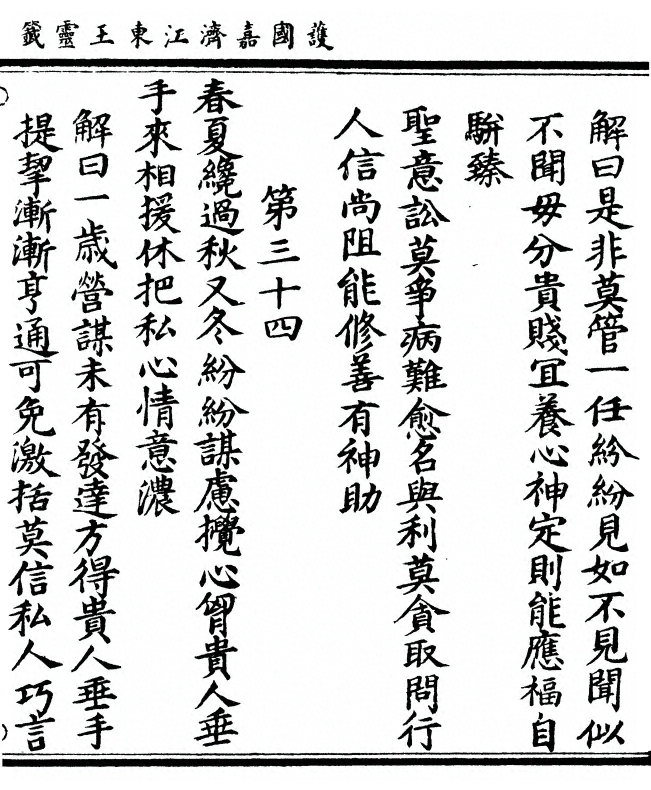 護國嘉濟江東王靈籤
解曰是非莫管一任紛紛見如不見聞似
不聞毋分貴賤冝養心神定則能應福自
駢臻
聖意訟莫爭病難愈名與利莫貪取問行
人信尚阻能修善有神助
第三十四
春夏纔過秋又冬紛紛謀慮攪心胷貴人垂
手來相援休把私心情意濃
解曰一歲營謀未有發達方得貴人垂手
提挈漸漸亨通可免激括莫信私人巧言